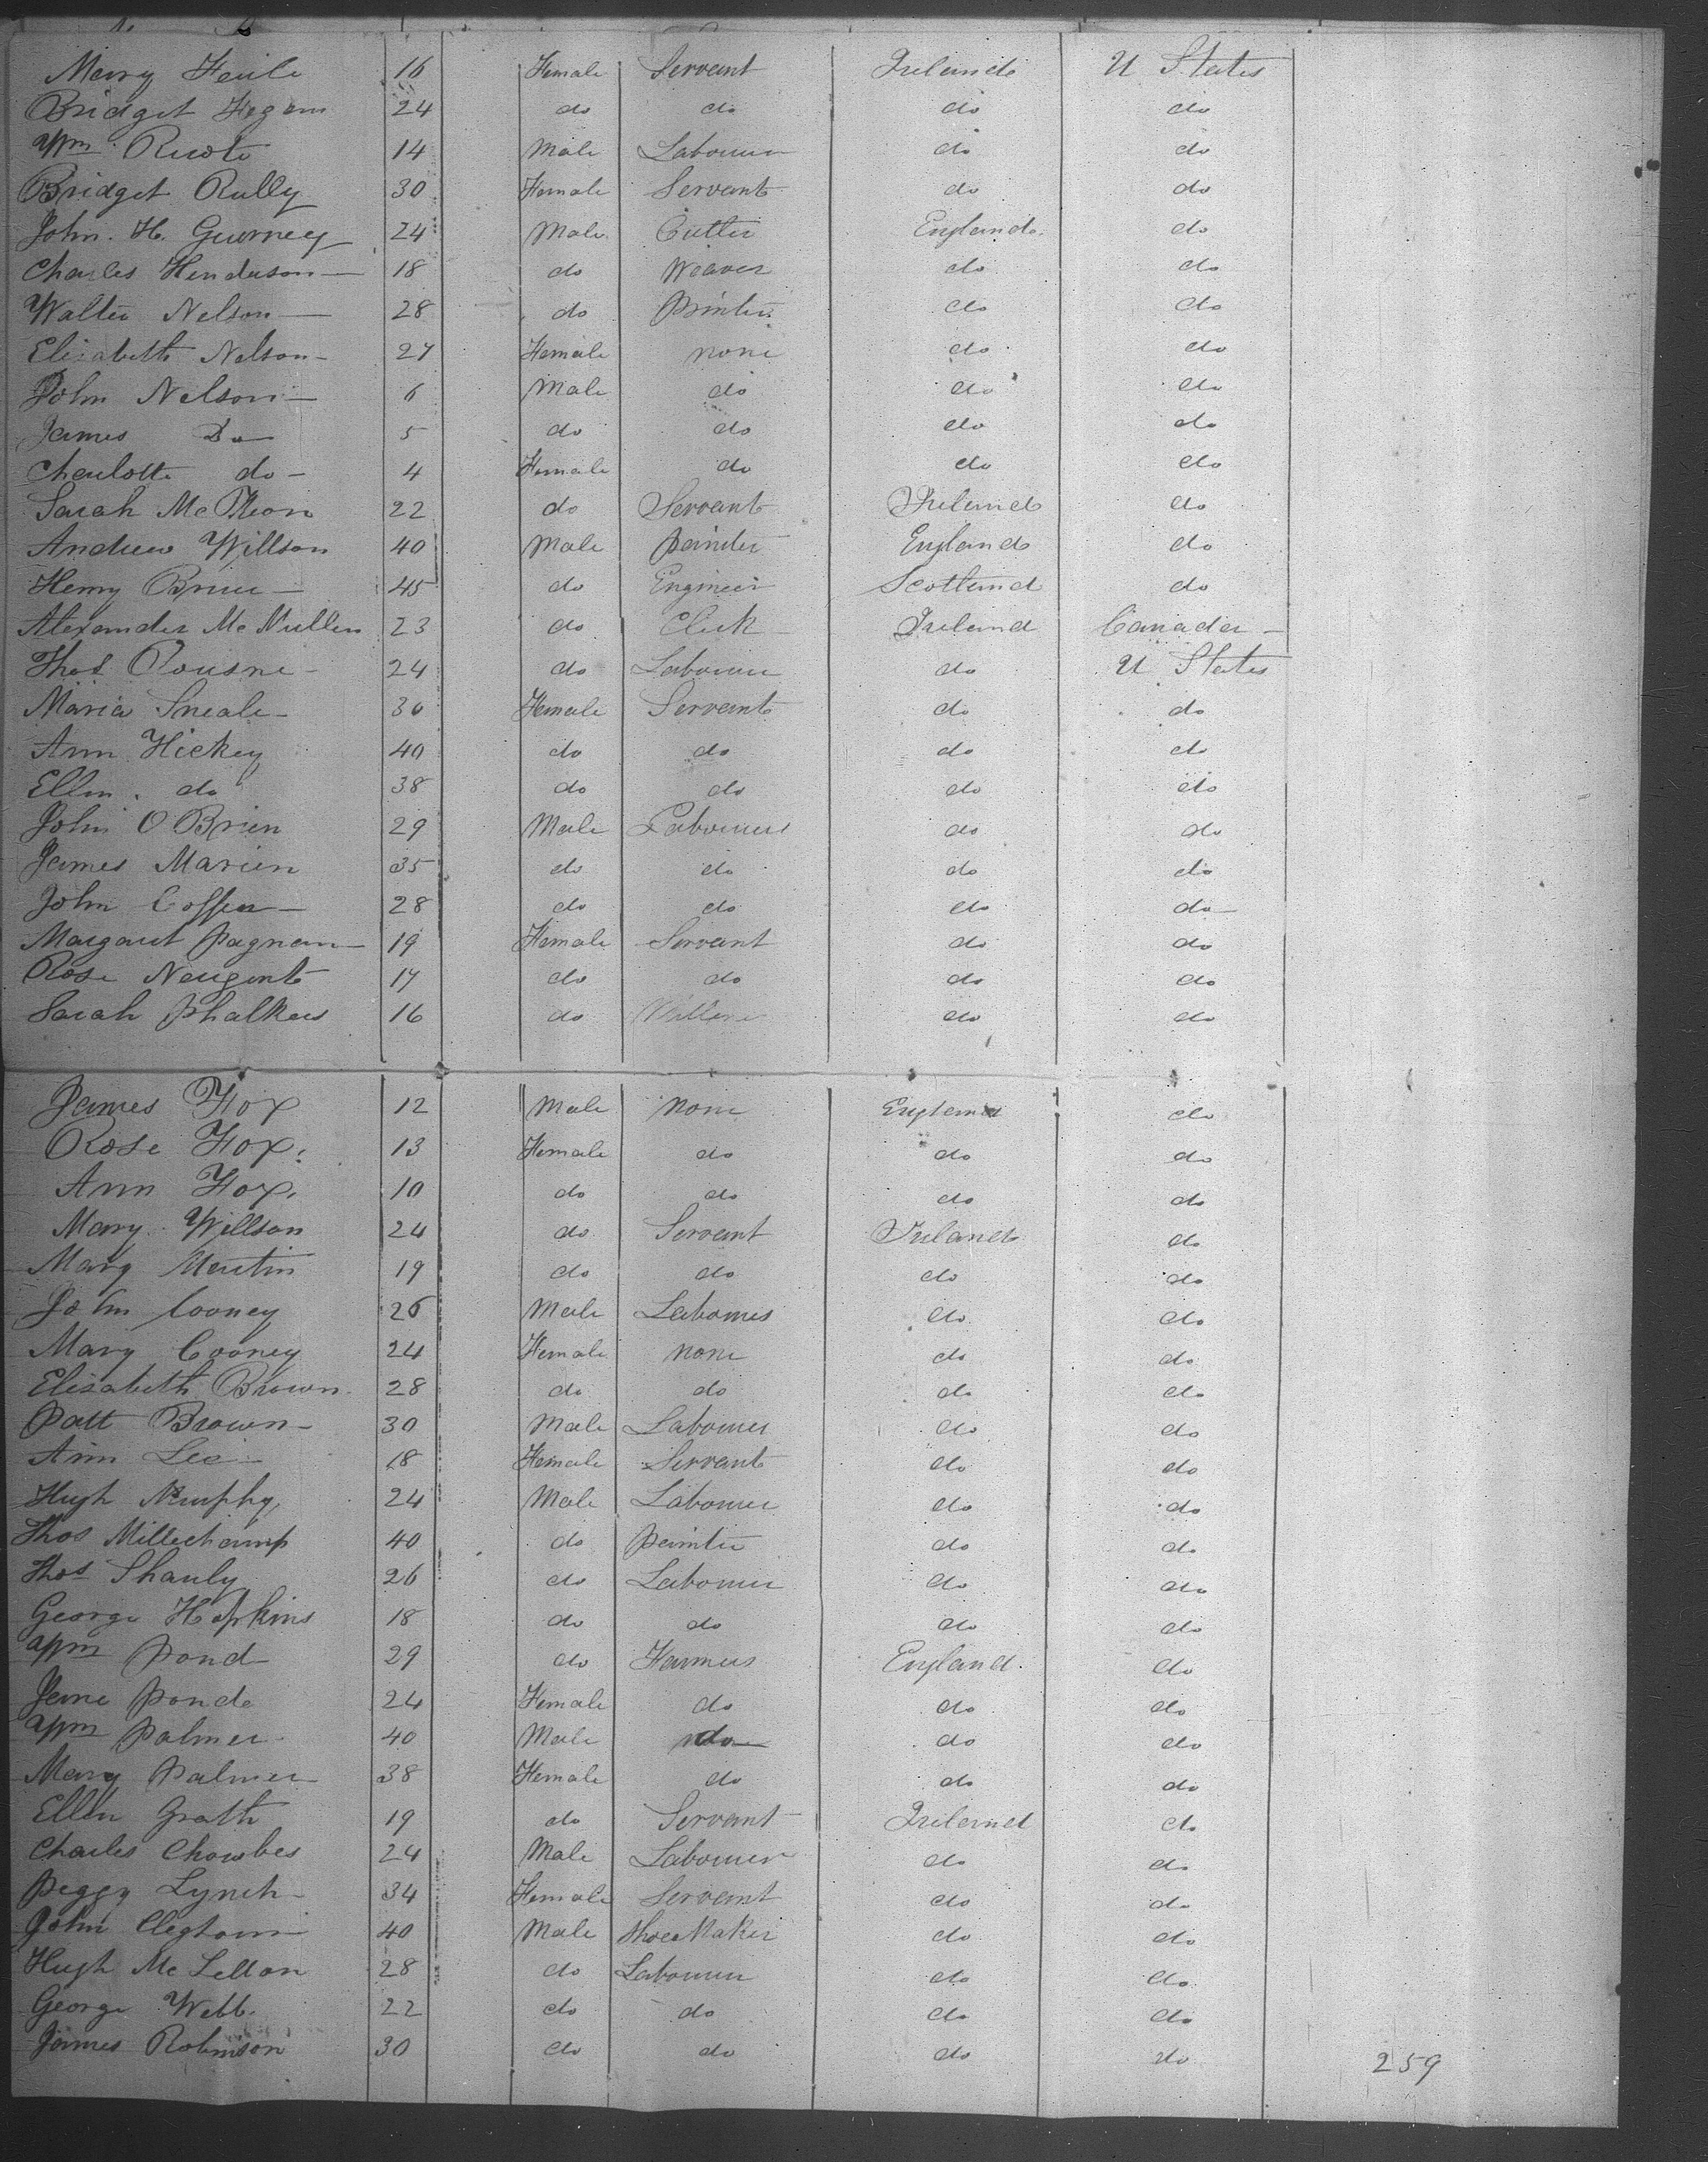 Mary 16 Female Servant Ireland U States
Bridget 24 do do do do
Wm 14 Male Labourer do do
Bridget Rully 30 Female Servant do do
John. H. Gurney 24 Male Cutler England do
Charles Henderson 18 do Weaver do do
Walter Nelson 28 do Printer do do
Elizabeth Nelson 27 Female none do do
John Nelson 6 Male do do do
James Do 5 do do do do
Charlotte do 4 Female do do do
Sarah 22 do Servant Ireland do
Andrew Willson 40 Male Painter England do
Henry 45 do Engineer Scotland do
Alexander McMullen 23 do Clerk Ireland Canada
Thos 24 do Labourer do U States
Maria 30 Female Servant do do
Ann Hickey 40 do do do do
Ellen do 38 do do do do
John O Brien 29 Male Labourer do do
James Marien 35 do do do do
John 28 do do do do
Margaret 19 Female Servant do do
Rose Neugent 17 do do do do
Sarah 16 do do do
James Fox 12 Male none England do
Rose Fox 13 Female do do do
Ann Fox 10 do do do do
Mary Willson 24 do Servant Ireland do
Mary Martin 19 do do do do
John Cooney 26 Male Labourer do do
Mary Cooney 24 Female none do do
Elizabeth Brown 28 do do do do
Patt Brown 30 Male Labourer do do
Ann Lee 18 Female Servant do do
Hugh Murphy 24 Male Labourer do do
Thos Millechamp 40 do painter do do
Thos Shanly 26 do Labourer do do
George Hopkins 18 do do do do
Wm Pond 29 do Farmer England do
Jane Pond 24 Female do do do
Wm Palmer 40 Male do do do
Mary Palmer 38 Female do do do
Ellen Grath 19 do Servant Ireland do
Charles 24 Male Labourer do do
Peggy Lynch 34 Female Servant do do
John 40 Male Shoe Maker do do
Hugh Mc Lellan 28 do Labourer do do
George Webb 22 do do do do
James Robinson 30 do do do do
259